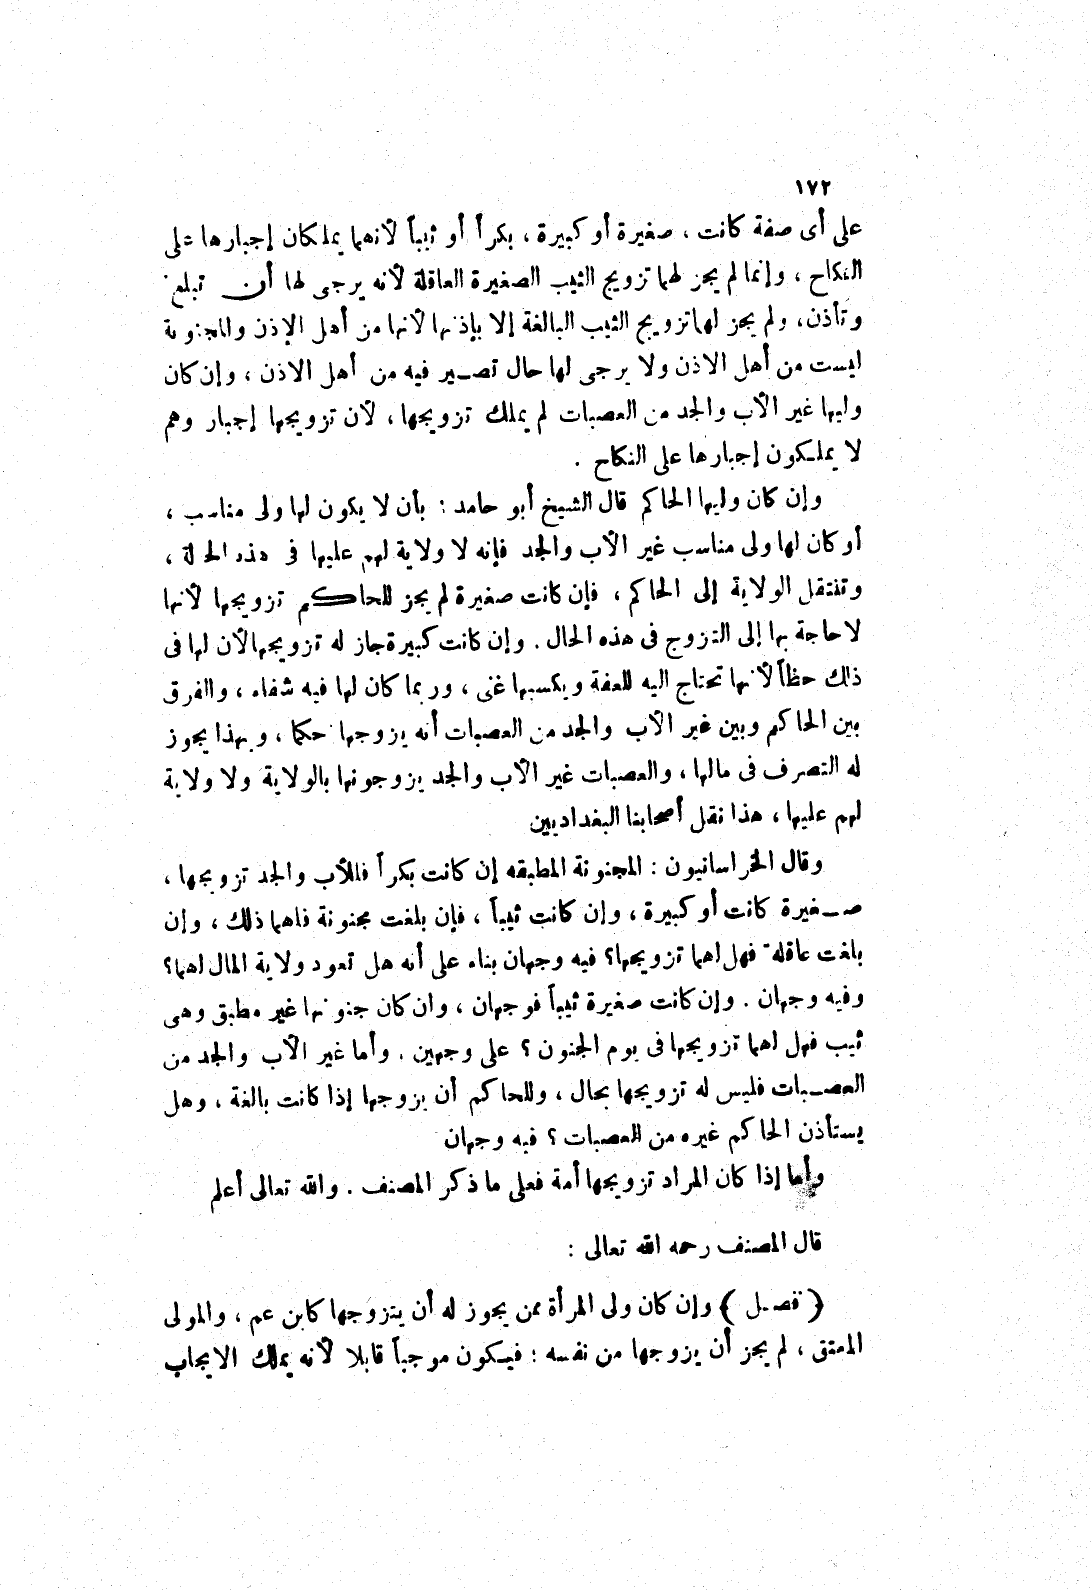 ١٧٢
على أى صفة كانت ، صغيرة أو كبيرة ، بكرا أو ثيباً لأنهما يملكان إجبارها على
النكاح ، وإنما لم يجز لهما تزويج الثيب الصغيرة العاقلة لأنه يرجى لها أن تبلغ
وتأذن، ولم يجز لهما تزويج الثيب البالغة إلا بإذنها لأنها من أهل الإذن والمجنونة
ليست من أهل الاذن ولا يرجى لها حال تصير فيه من أهل الاذن ، وإن كان
وليها غير الأب والجد من العصبات لم يملك تزويجها ، لأن تزويجها إجبار وهم
لا يملكون إجبارها على النكاح .
وإن كان وليها الحاكم قال الشيخ أبو حامد : بأن لا يكون لها ولى مناسب ،
أو كان لها ولى مناسب غير الأب والجد فإنه لا ولاية لهم عليها فى هذه الحالة ،
وتنتقل الولاية إلى الحاكم ، فإن كانت صغيرة لم يجز للحاكم تزويجها لأنها
لا حاجة بها إلى التزوج فى هذه الحال . وإن كانت كبيرة جاز له تزويجها لأن لها فى
ذلك حظاً لأنها تحتاج اليه للعفة ويكسبها غنى ، وربما كان لها فيه شفاء ، والفرق
بين الحاكم وبين غير الأب والجد من العصبات أنه يزوجها حكما ، وبهذا يجوز
له التصرف فى مالها ، والعصبات غير الأب والجد يزوجونها بالولاية ولا ولاية
لهم عليها ، هذا نقل أصحابنا البغداديين
وقال الخراسانيون : المجنونة المطبقه إن كانت بكراً فللأب والجد تزويجها ،
صغيرة كانت أو كبيرة ، وإن كانت ثيباً ، فإن بلغت مجنونة فلهما ذلك ، وإن
بلغت عاقله فهل لهما تزويجها؟ فيه وجهان بناء على أنه هل تعود ولاية المال لهما؟
وفيه وجهان . وإن كانت صغيرة ثيباً فوجهان ، وان كان جنونها غير مطبق وهى
ثيب فهل لهما تزويجها فى يوم الجنون ؟ على وجهين . وأما غير الأب والجد من
العصبات فليس له تزويجها بحال ، وللحاكم أن يزوجها إذا كانت بالغة ، وهل
يستأذن الحاكم غيره من العصبات ؟ فيه وجهان
وأما إذا كان المراد تزويجها أمة فعلى ما ذكر المصنف . والله تعالى أعلم
قال المصنف رحمه الله تعالى :
( فصل ) وإن كان ولى المرأة ممن يجوز له أن يتزوجها كابن عم ، والمولى
المعتق ، لم يجز أن يزوجها من نفسه : فيكون موجباً قابلا لأنه يملك الايجاب